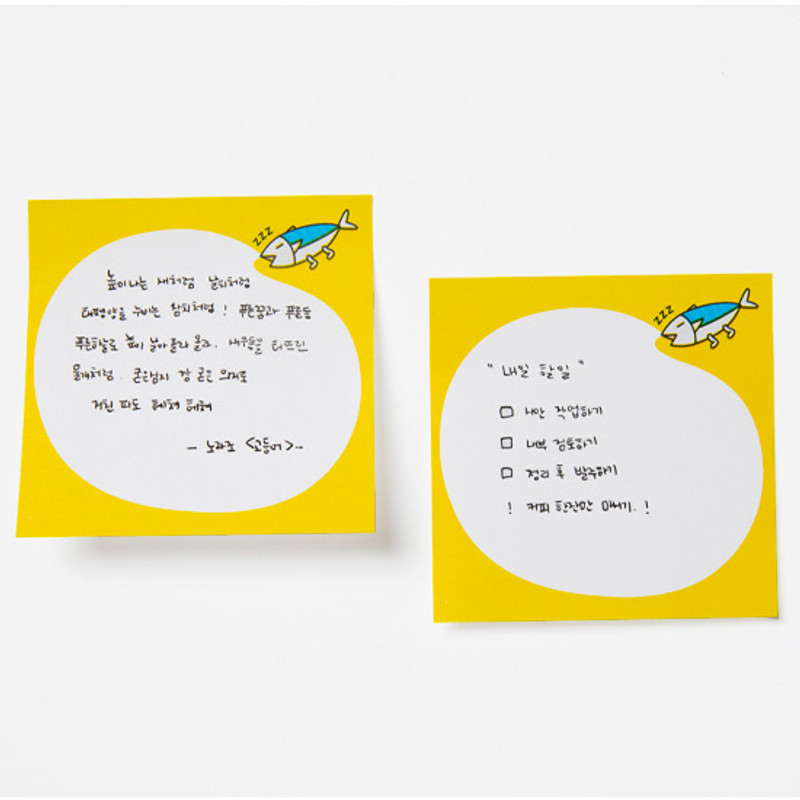 zzz
높이나는 새처럼 날치처럼
태평양을 누비는 참치처럼! 푸른꿈과 푸른등
푸른하늘로 높이 날아올라 올라. 새우들을 터뜨린
물개처럼. 굳은심지 장 굳은 의지로
거친 파도 헤쳐 헤쳐
- 노라조 <고등어>-
zzz
"내일 할일"
□ 시안 작업하기
□ 내부 검토하기
□ 정리 후 발주하기
! 커피 한잔만 마시기. !